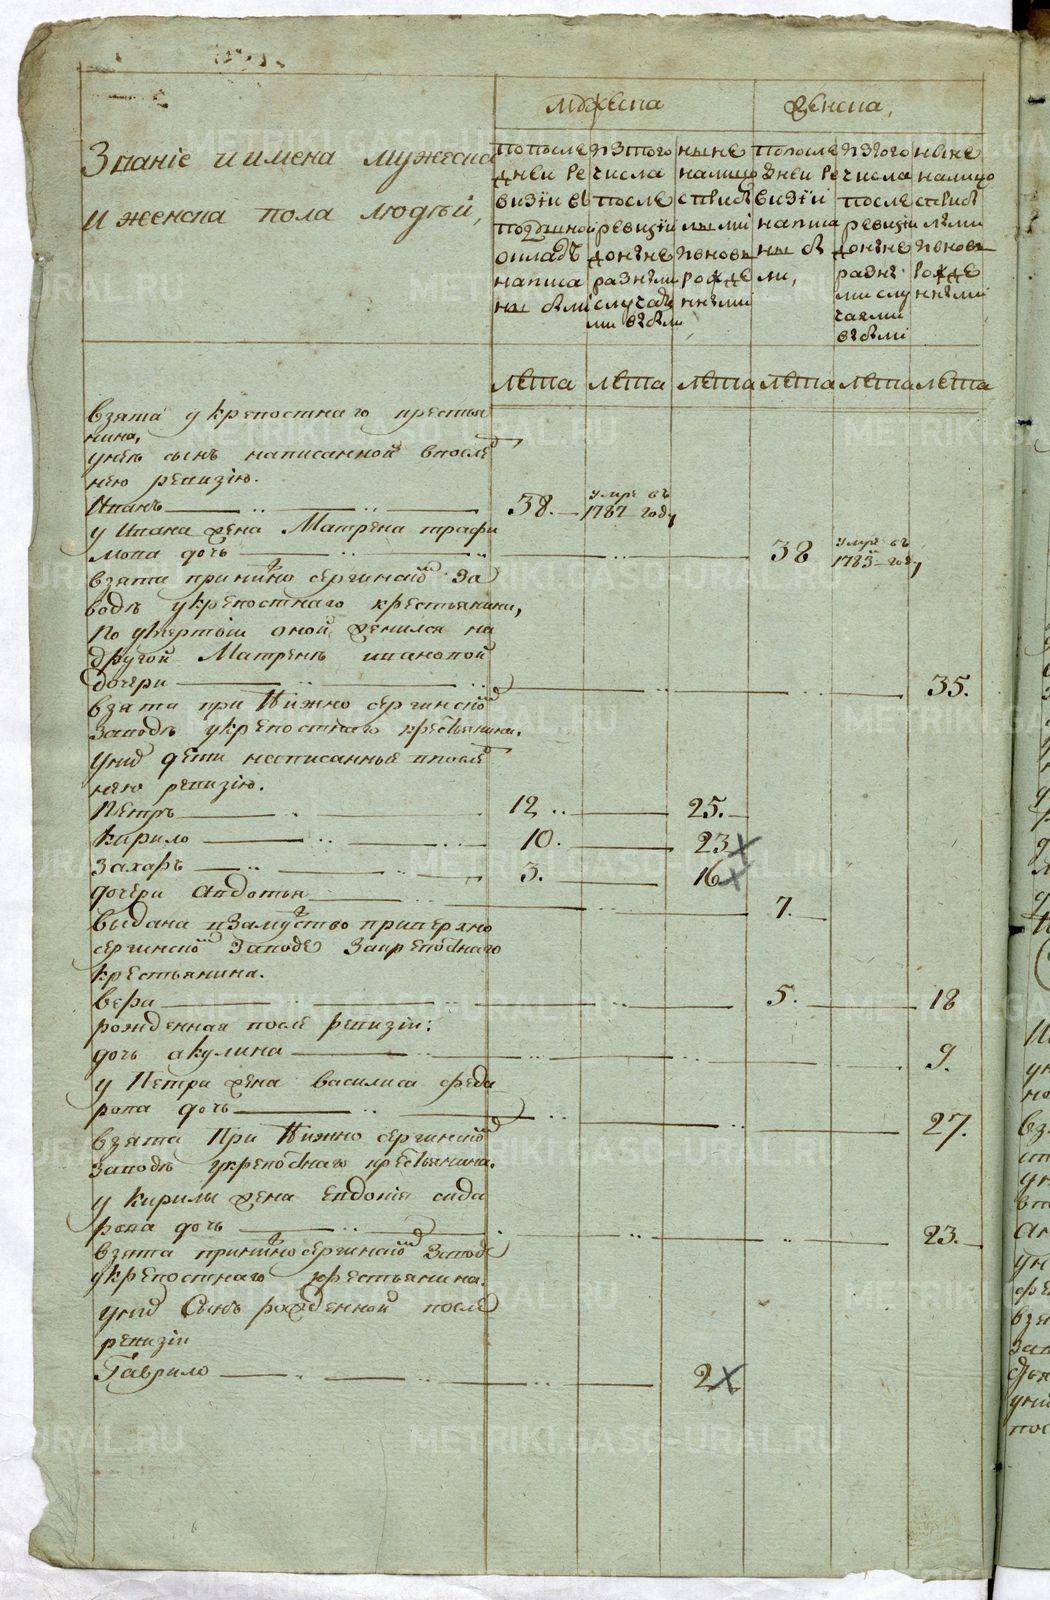 мужеска
женска,
Званіе и имена мужеска
и женска пола людѣй,
по после
дней ре
визіи въ
подушной
окладъ
написа
ны были
изтого
числа
после
ревизіи
до нъне
разными
случая
ми выбыли
ныне
налицо
спрібы
лыми
и новь
рожде
нными
попосле
дней ре
визіи
написа
ны бы
ли,
изтого
числа
после
ревизіи
до нъне
разны
ми слу
чаями
выбыли
ныне
налицо
спрібы
лыми
и новь
рожде
нными
лѣта лѣта лѣта лѣта лѣта лѣта
взята у крепостнаго крестья
нина,
унихъ сынъ написанной впослед
нею ревизію.
Иванъ 38. умре въ 1787 году
у Ивана жена Матрена трафи
мова дочь 38 умре въ 1783 году
взята принижно сергинскомъ за
водѣ укрепостнаго крестьянина,
По умертвіи оной женился на
другой Матренѣ ивановой
дочери 35.
взята при Нижно сергинскомъ
заводѣ укрепостнаго крестьянина,
унихъ дети написанные впослед
нею ревизію.
Петръ 12 25.
Кирило 10. 23
Захаръ 3. 16
дочери Авдотья 7.
выдана взамуство приверхно
сергинскомъ Заводе Закрепостнаго
крестьянина.
вера 5. 18
рожденная после ревизіи:
дочь акулина 9.
у Петра жена василиса феда
рова дочь 27.
взята При Нижно сергинскомъ
заводѣ укрепостнаго крестьянина.
у кирилы жена евдокія сида
рова дочь 23.
взята принижно сергинскомъ Заводе
укрепостнаго крестьянина.
унихъ Сынъ рожденной после
ревизіи
Гаврило 2
METRIKI.GASO-URAL.RU